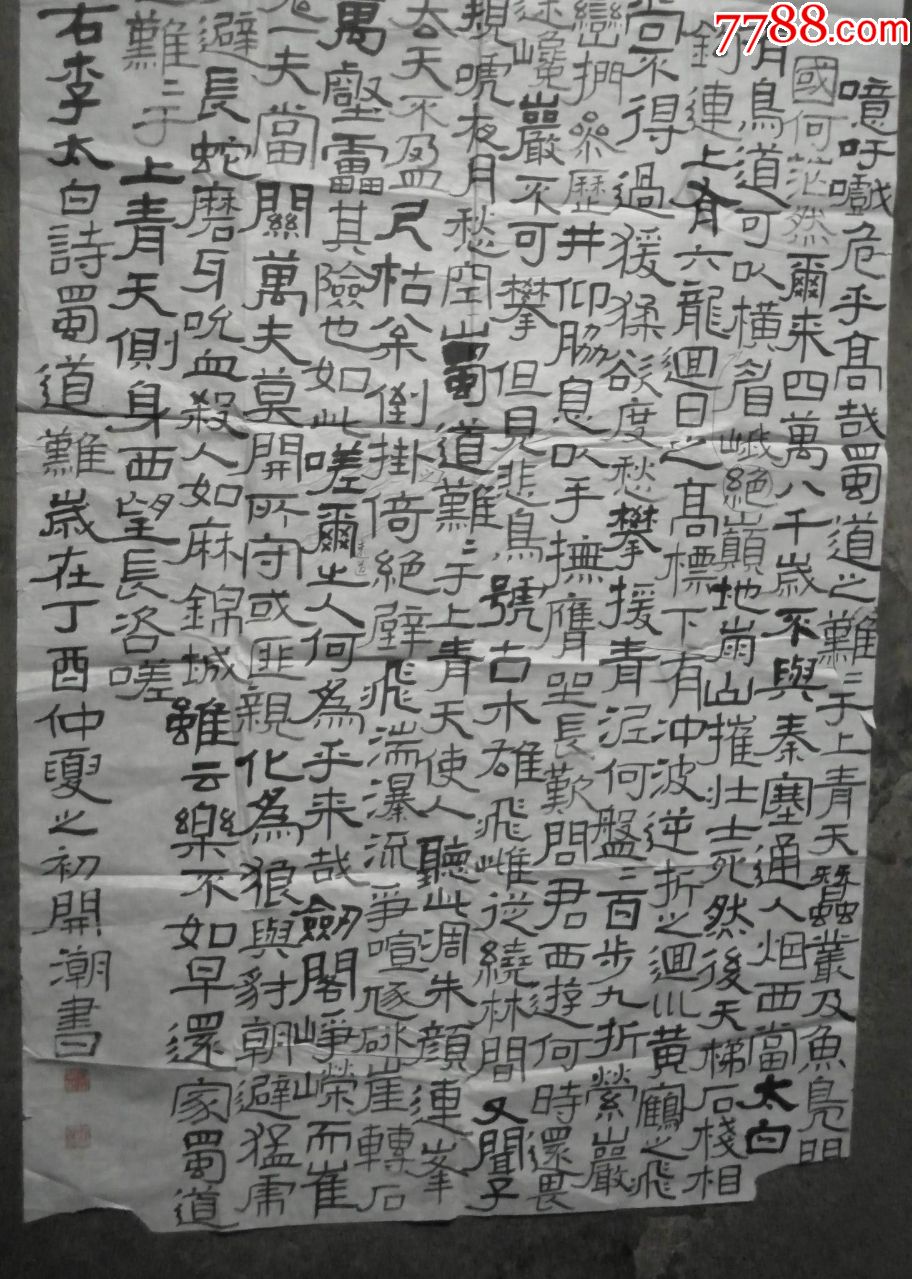 7788.com
噫吁戲危乎髙哉蜀道之難〻于上青天蠶叢及魚鳧開
國何茫然爾来四萬八千歳不與秦塞通人烟西當太白
有鳥道可以横眉峨絶巔地崩山摧壮士死然後天梯石棧相
鈎連上有六龍迴日之髙標下有冲波逆折之迴川黃鶴之飛
尚不得過猨猱欲度愁攀援青泥何盤三百步九折縈巖
巒捫參歷井仰脇息以手撫膺坐長歎問君西遊何時還畏
途巉巖不可攀但見悲鳥號古木雄飛雌從繞林間又聞子
規號夜月愁空山蜀道難〻于上青天使人聽此凋朱顔連峯
去天不盈尺枯松倒掛倚絶壁飛湍瀑流爭喧豗砯崖轉石
萬壑雷其險也如此嗟爾之人何為乎来哉劒閣崢嶸而崔
嵬一夫當關萬夫莫開所守或匪親化為狼與豺朝避猛虎
避長蛇磨牙吮血殺人如麻錦城雖云樂不如早還家蜀道
難〻于上青天側身西望長咨嗟
右李太白詩蜀道難歳在丁酉仲夏之初開潮書